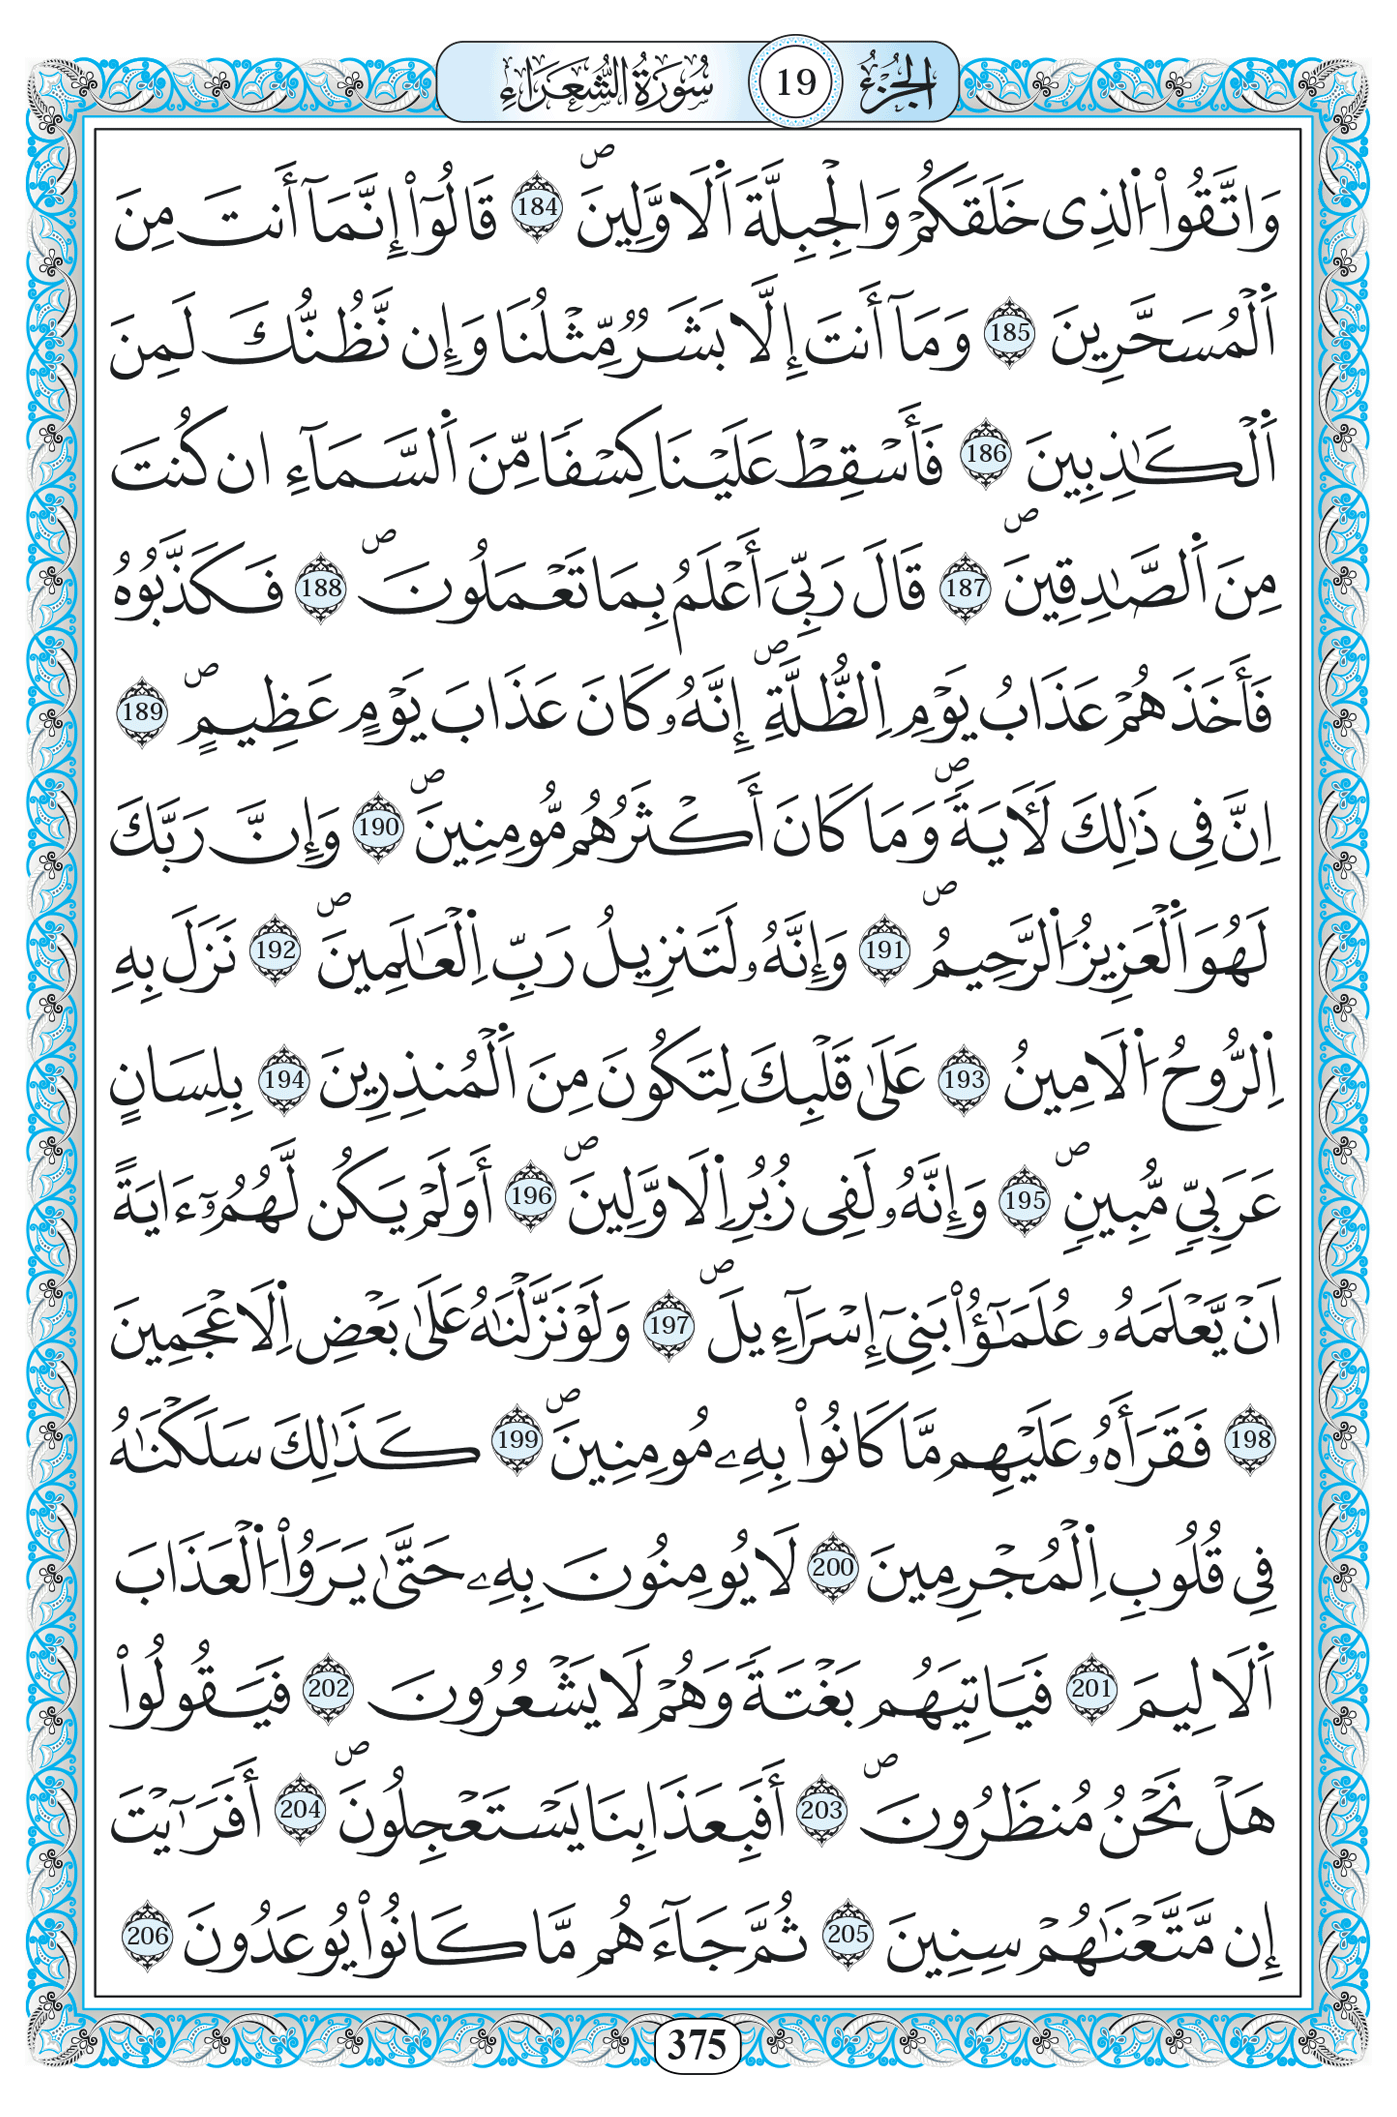 الجزء 19 سُورَةُ الشُّعَرَاءِ
وَاتَّقُواْ الذِى خَلَقَكُمْ وَالْجِبِلَّةَ اَ۬لَاوَّلِينَۖ 184 قَالُوٓاْ إِنَّمَآ أَنتَ مِنَ
اَ۬لْمُسَحَّرِينَ 185 وَمَآ أَنتَ إِلَّا بَشَرٌ مِّثْلُنَا وَإِن نَّظُنُّكَ لَمِنَ
اَ۬لْكَٰذِبِينَ 186 فَأَسْقِطْ عَلَيْنَا كِسْفاٗ مِّنَ اَ۬لسَّمَآءِ ان كُنتَ
مِنَ اَ۬لصَّٰدِقِينَۖ 187 قَالَ رَبِّىَ أَعْلَمُ بِمَا تَعْمَلُونَۖ 188 فَكَذَّبُوهُ
فَأَخَذَهُمْ عَذَابُ يَوْمِ اِ۬لظُّلَّةِۖ إِنَّهُۥ كَانَ عَذَابَ يَوْمٍ عَظِيمٍۖ 189
اِنَّ فِى ذَٰلِكَ لَأٓيَةٗۖ وَمَا كَانَ أَكْثَرُهُم مُّومِنِينَۖ 190 وَإِنَّ رَبَّكَ
لَهُوَ اَ۬لْعَزِيزُ اُ۬لرَّحِيمُۖ 191 وَإِنَّهُۥ لَتَنزِيلُ رَبِّ اِ۬لْعَٰلَمِينَۖ 192 نَزَلَ بِهِ
اِ۬لرُّوحُ اُ۬لَامِينُ 193 عَلَىٰ قَلْبِكَ لِتَكُونَ مِنَ اَ۬لْمُنذِرِينَ 194 بِلِسَانٍ
عَرَبِىّٖ مُّبِينٖۖ 195 وَإِنَّهُۥ لَفِى زُبُرِ اِ۬لَاوَّلِينَۖ 196 أَوَلَمْ يَكُن لَّهُمُۥٓ ءَايَةً
اَنْ يَّعْلَمَهُۥ عُلَمَٰٓؤُاْ بَنِىٓ إِسْرَآءِيلَۖ 197 وَلَوْ نَزَّلْنَٰهُ عَلَىٰ بَعْضِ اِ۬لَاعْجَمِينَ
198 فَقَرَأَهُۥ عَلَيْهِم مَّا كَانُواْ بِهِۦ مُومِنِينَۖ 199 كَذَٰلِكَ سَلَكْنَٰهُ
فِى قُلُوبِ اِ۬لْمُجْرِمِينَ 200 لَا يُومِنُونَ بِهِۦ حَتَّىٰ يَرَوُاْ اُ۬لْعَذَابَ
اَ۬لَالِيمَ 201 فَيَاتِيَهُم بَغْتَةٗ وَهُمْ لَا يَشْعُرُونَ 202 فَيَقُولُواْ
هَلْ نَحْنُ مُنظَرُونَۖ 203 أَفَبِعَذَابِنَا يَسْتَعْجِلُونَۖ 204 أَفَرَٰٓيْتَ
إِن مَّتَّعْنَٰهُمْ سِنِينَ 205 ثُمَّ جَآءَهُم مَّا كَانُواْ يُوعَدُونَ 206
375